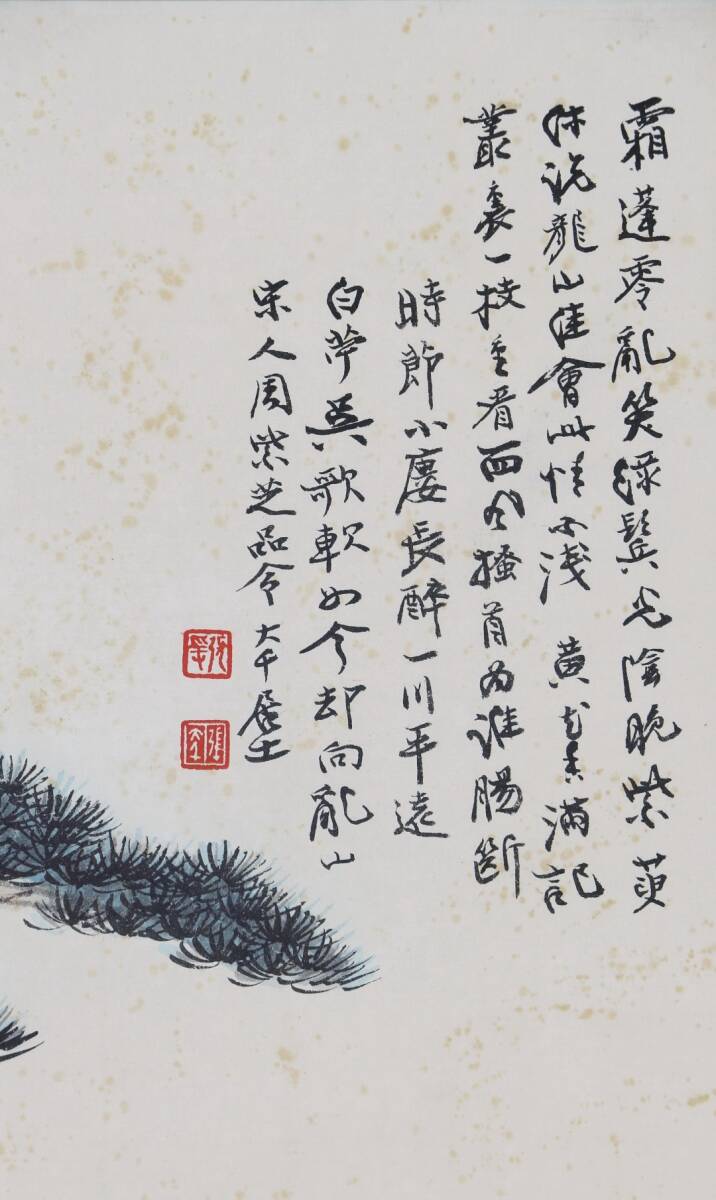 霜蓬零亂笑綠鬢光陰晚紫萸
休說龍山佳會此情不淺 黃花香滿記
叢裏一枝重看西風搔首為誰腸斷
時節小廔長醉一川平遠
白苧吳歌軟如今却向亂山
宋人周紫芝品令 大千居士